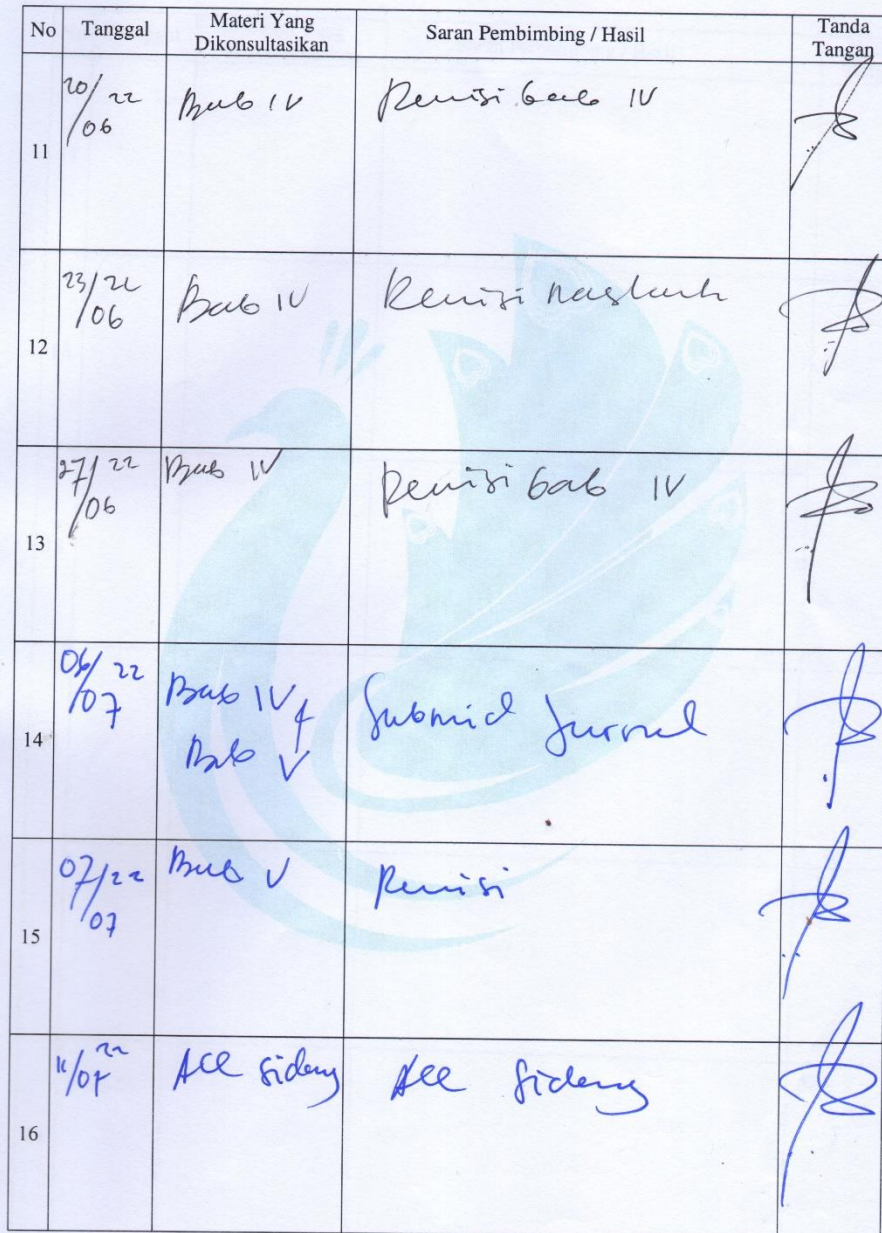 No Tanggal Materi Yang Dikonsultasikan Saran Pembimbing / Hasil Tanda Tangan
11 20/06 22 Bab IV Revisi bab IV
12 23/06 22 Bab IV Revisi naskah
13 27/06 22 Bab IV Revisi bab IV
14 06/07 22 Bab IV & Bab V Submid Jurnal
15 07/07 22 Bab V Revisi
16 11/07 22 Acc sidang Acc sidang